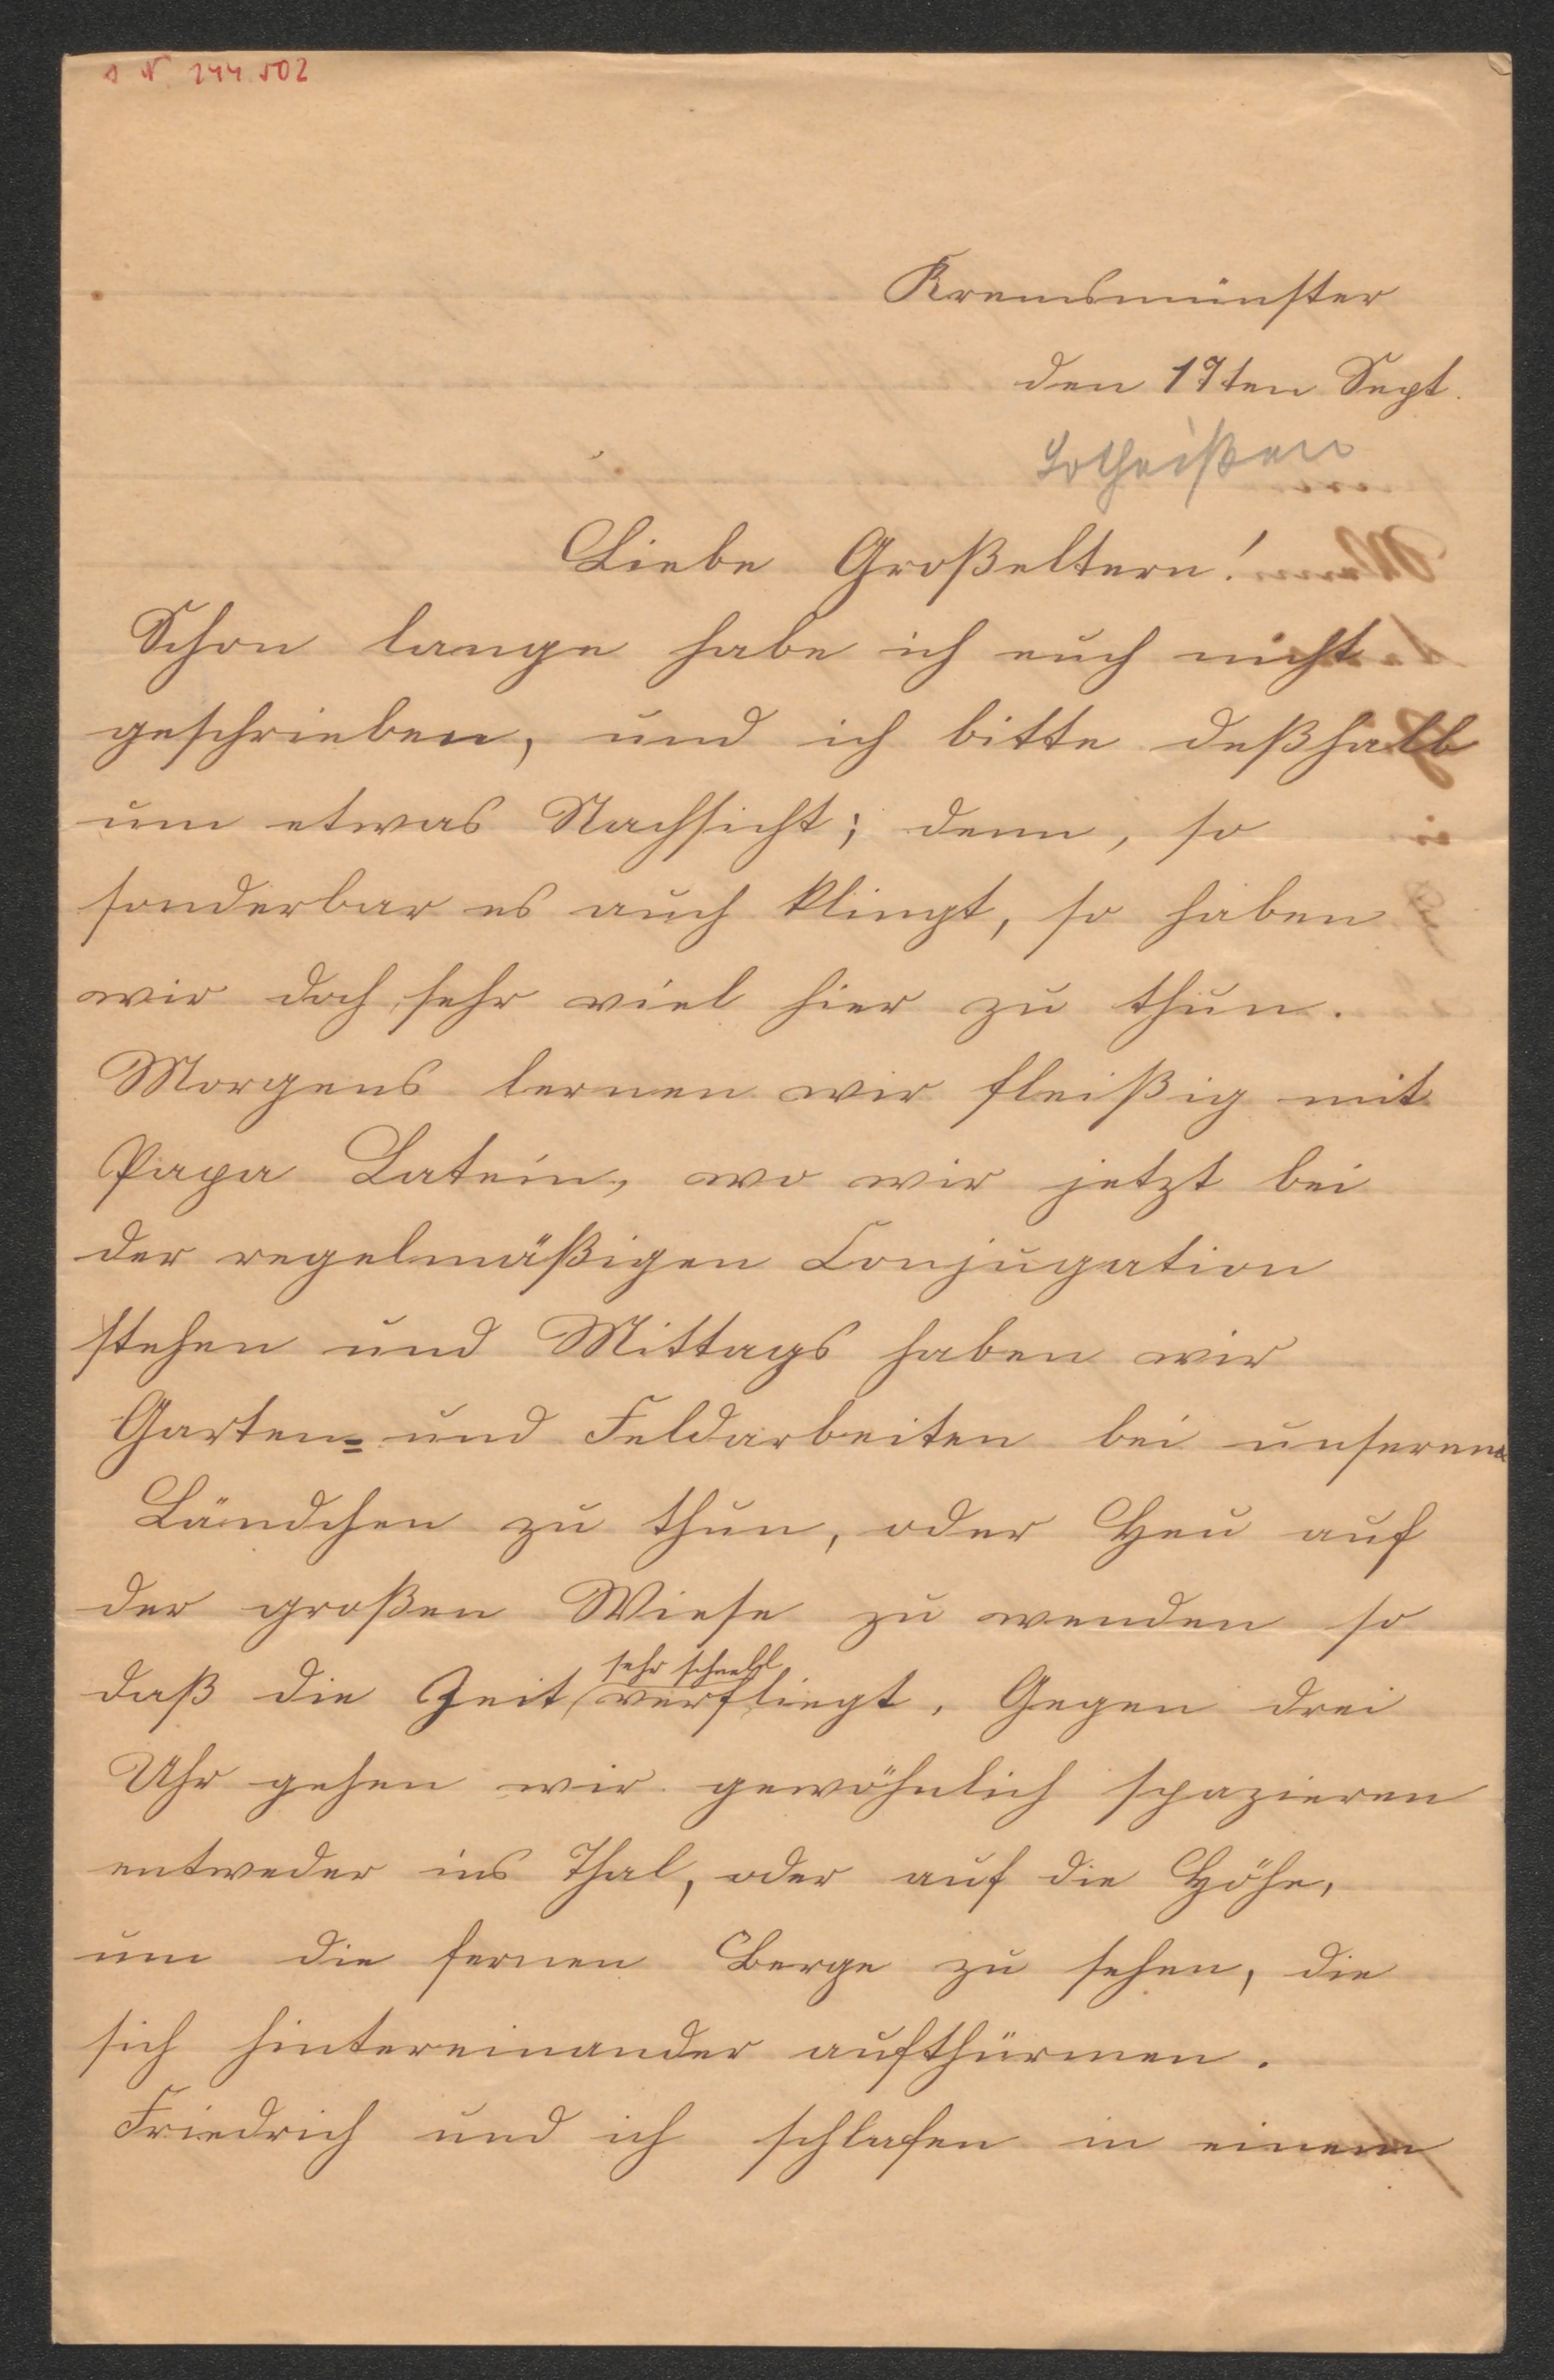 Kremsmünster
den 17ten Sept.
Lotheißen
Liebe Großeltern!
Schon lange habe ich euch nicht
geschrieben, und ich bitte deßhalb
um etwas Nachsicht; denn, so
sonderbar es auch klingt, so haben
wir doch sehr viel hier zu thun.
Morgens lernen wir fleißig mit
Papa Latein, wo wir jetzt bei
der regelmäßigen Conjugation
stehen und Mittags haben wir
Garten= und Feldarbeiten bei unserem
Ländchen zu thun, oder Heu auf
der großen Wiese zu wenden so
sehr schnell
daß die Zeit verfliegt. Gegen drei
Uhr gehen wir gewöhnlich spazieren
entweder ins Thal, oder auf die Höhe,
um die fernen Berge zu sehen, die
sich hintereinander aufthürmen.
Friedrich und ich schlafen in einem